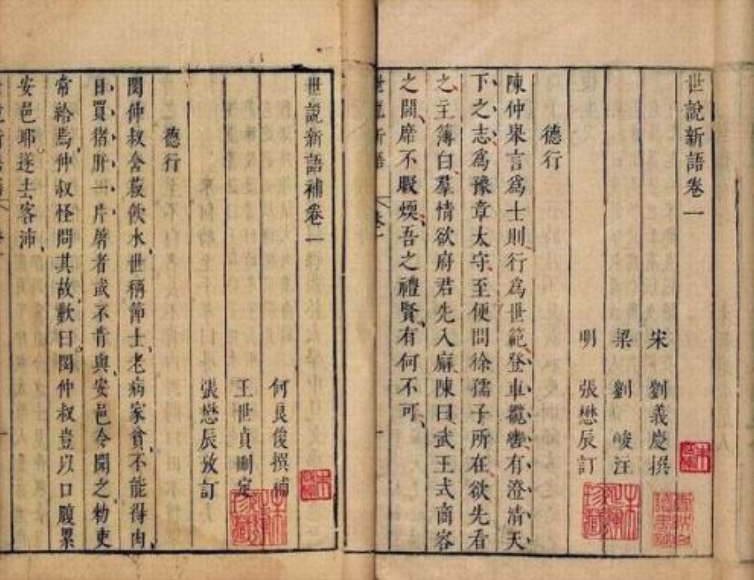 世說新語卷一
宋 劉義慶撰
梁 劉 峻注
明 張懋辰訂
德行
陳仲舉言爲士則行爲世範登車攬轡有澄清天
下之志爲豫章太守至便問徐孺子所在欲先看
之主簿白羣情欲府君先入廨陳曰武王式商容
之閭席不暇煖吾之禮賢有何不可
世說新語 卷一
世說新語補卷一
何良俊撰補
王世貞刪定
張懋辰攷訂
德行
閔仲叔含菽飲水世稱節士老病家貧不能得肉
日買猪肝一片屠者或不肯與安邑令聞之勑吏
常給焉仲叔怪問其故歎曰閔仲叔豈以口腹累
安邑耶遂去客沛